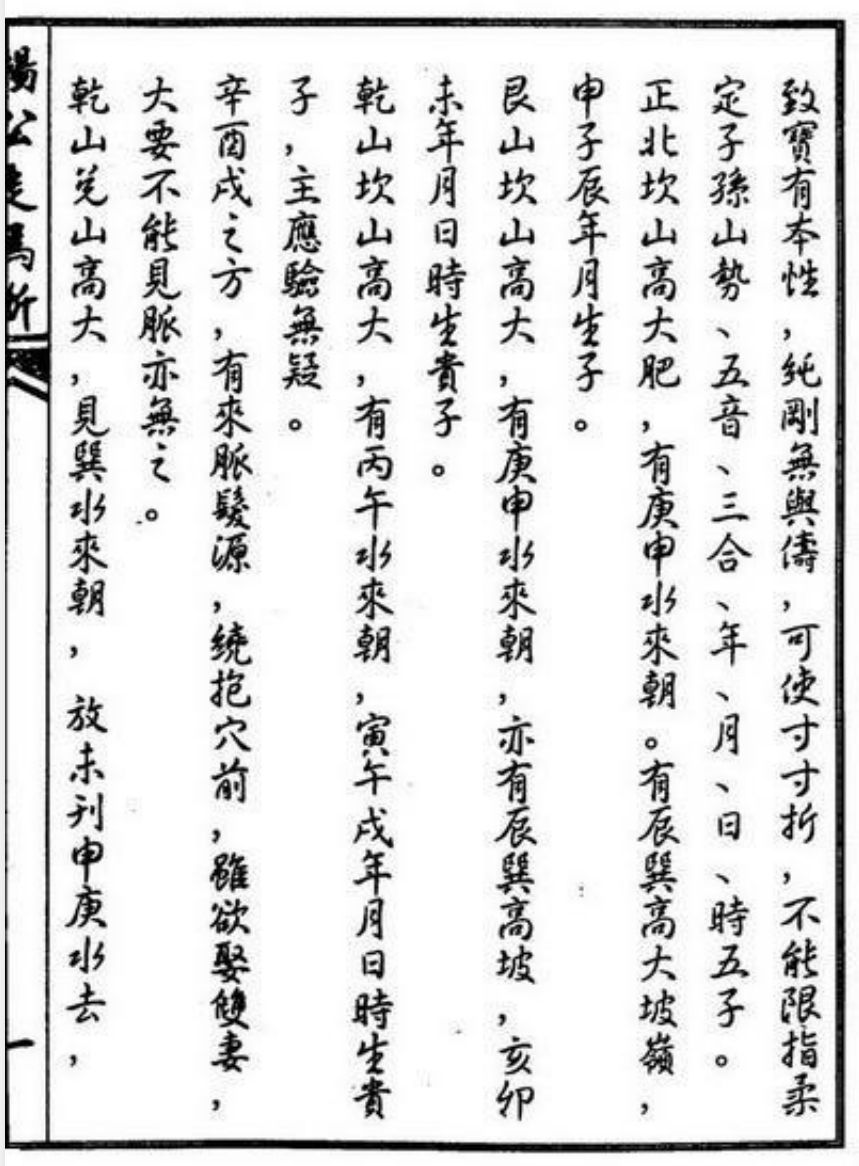 致寶有本性，純剛無與儔，可使寸寸折，不能限指柔
定子孫山勢、五音、三合、年、月、日、時五子。
正北坎山高大肥，有庚申水來朝。有辰巽高大坡嶺，
申子辰年月生子。
艮山坎山高大，有庚申水來朝，亦有辰巽高坡，亥卯
未年月日時生貴子。
乾山坎山高大，有丙午水來朝，寅午戌年月日時生貴
子，主應驗無疑。
辛酉戌之方，有來脈發源，繞抱穴前，雖欲娶雙妻，
大要不能見脈亦無之。
乾山兌山高大，見巽水來朝，放未刋申庚水去，
楊公走馬斷
一